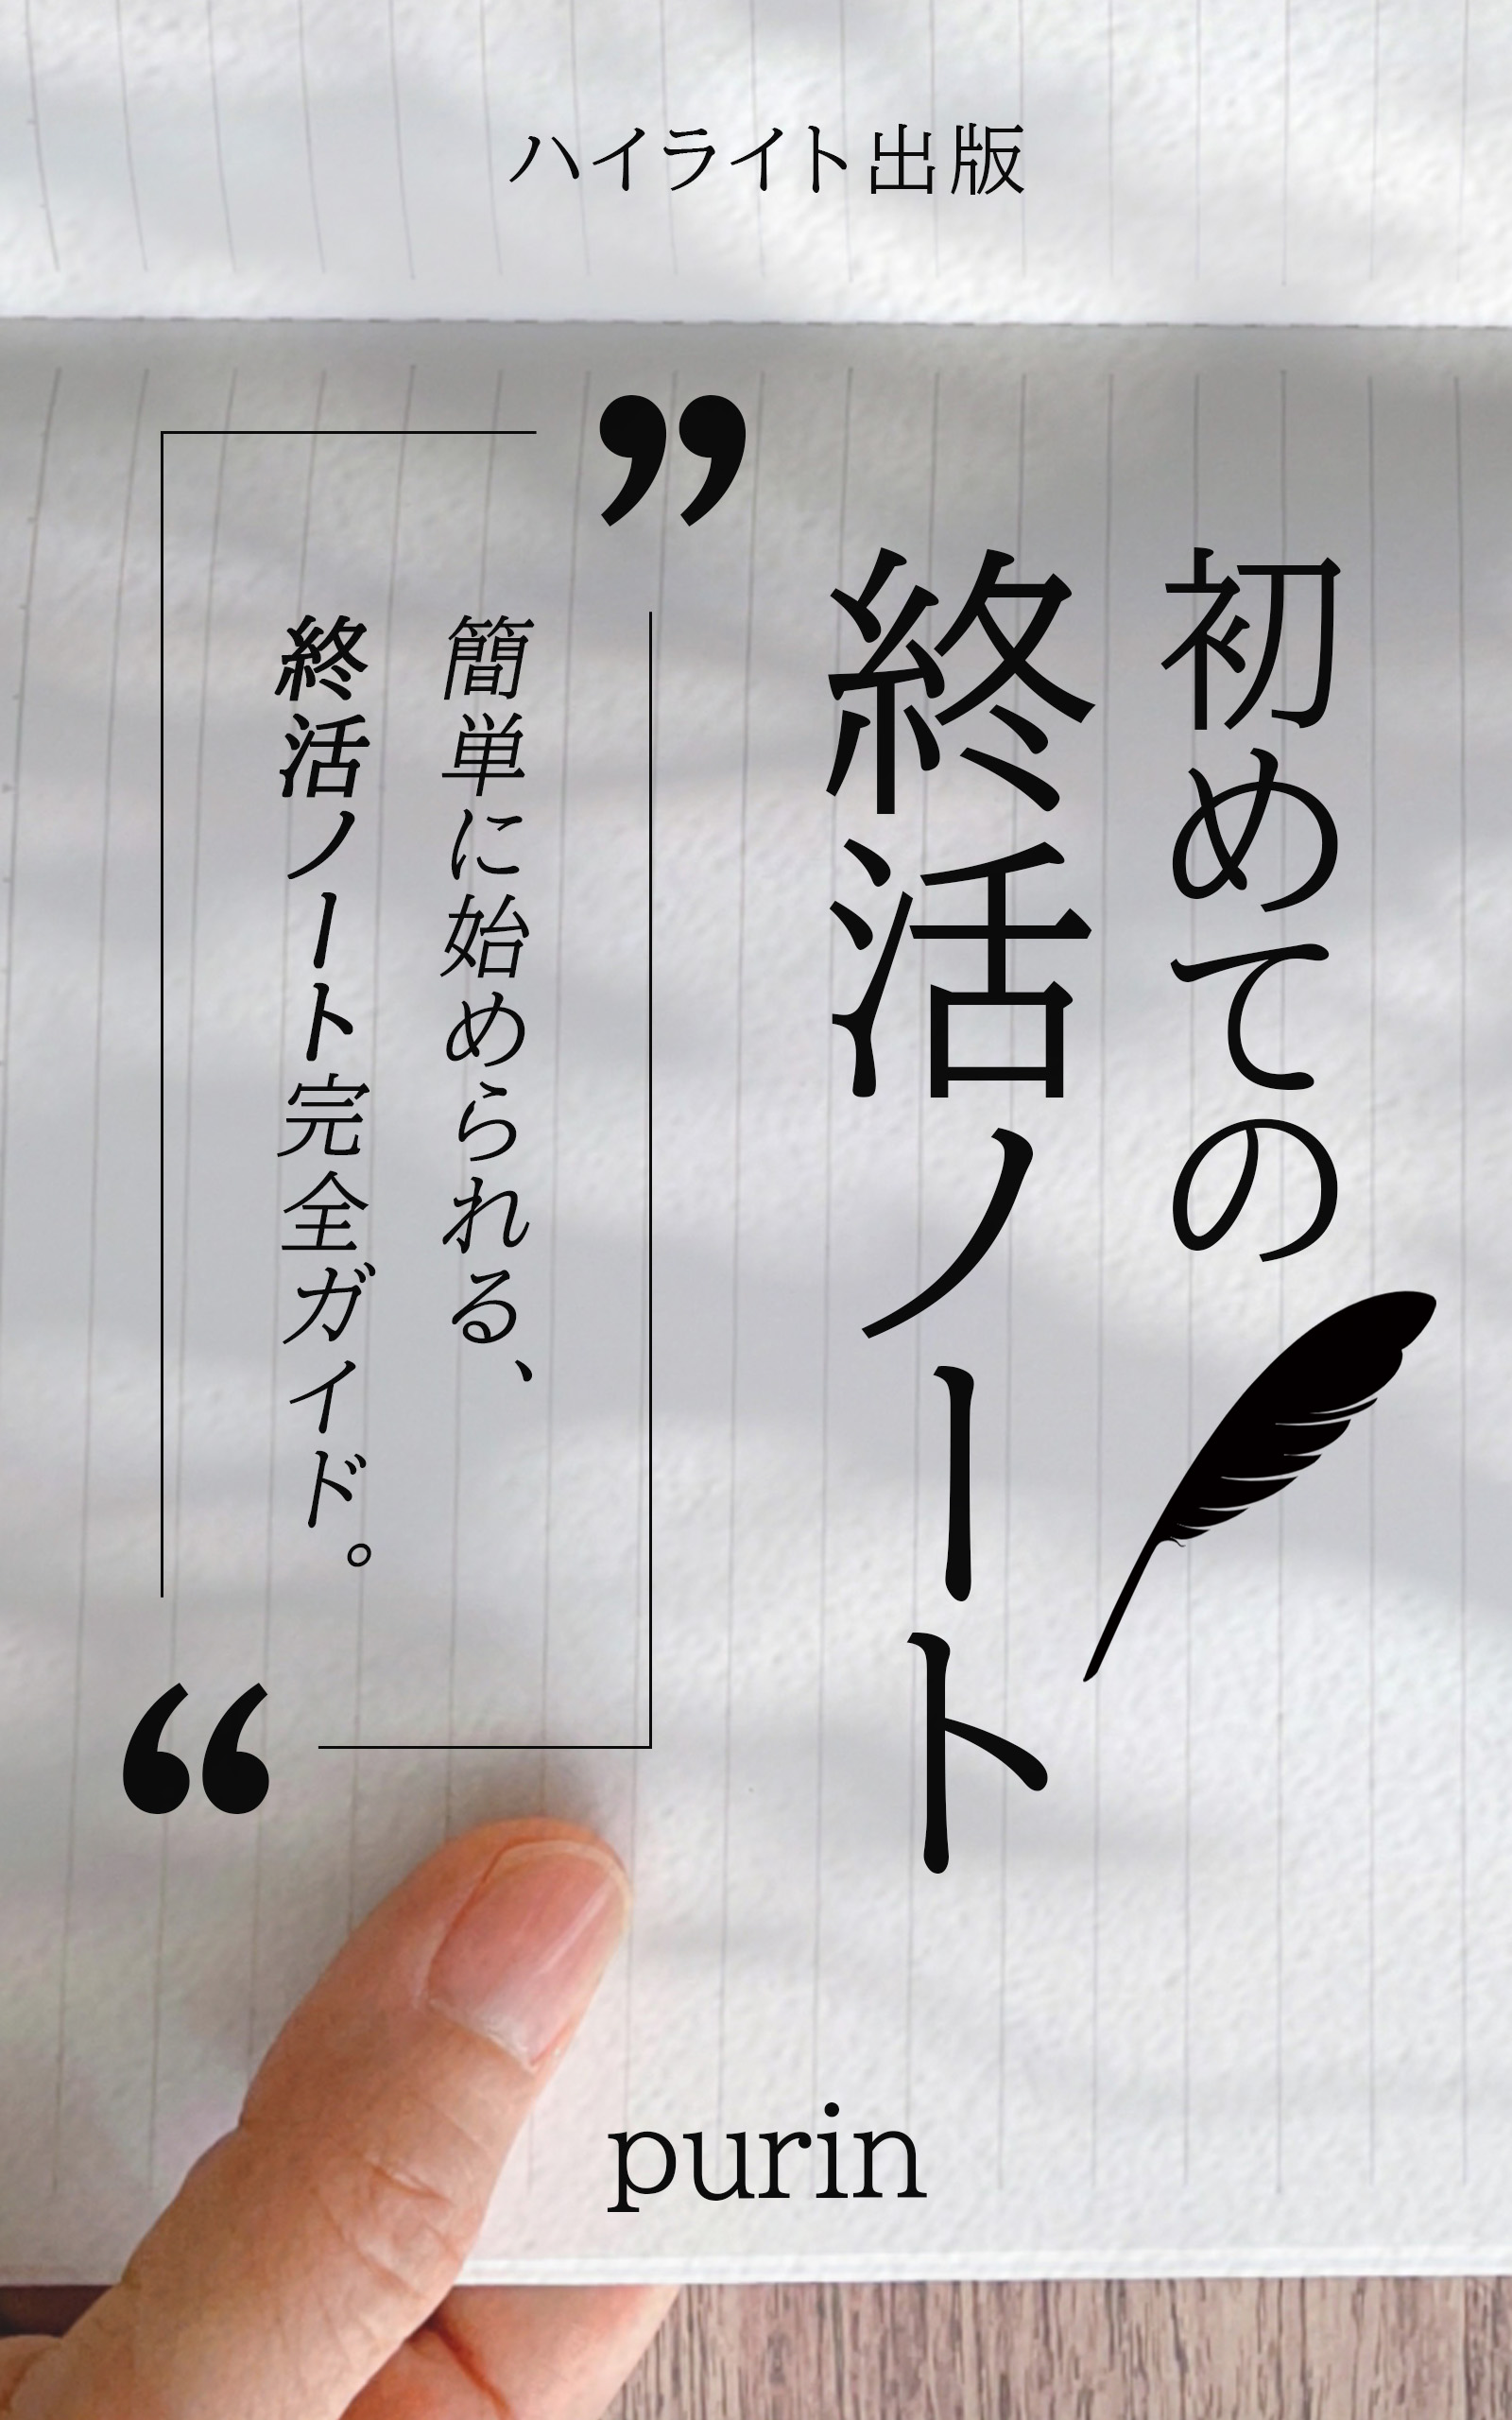 ハイライト出版
初めての
終活ノート
”
簡単に始められる、
終活ノート完全ガイド。
“
purin